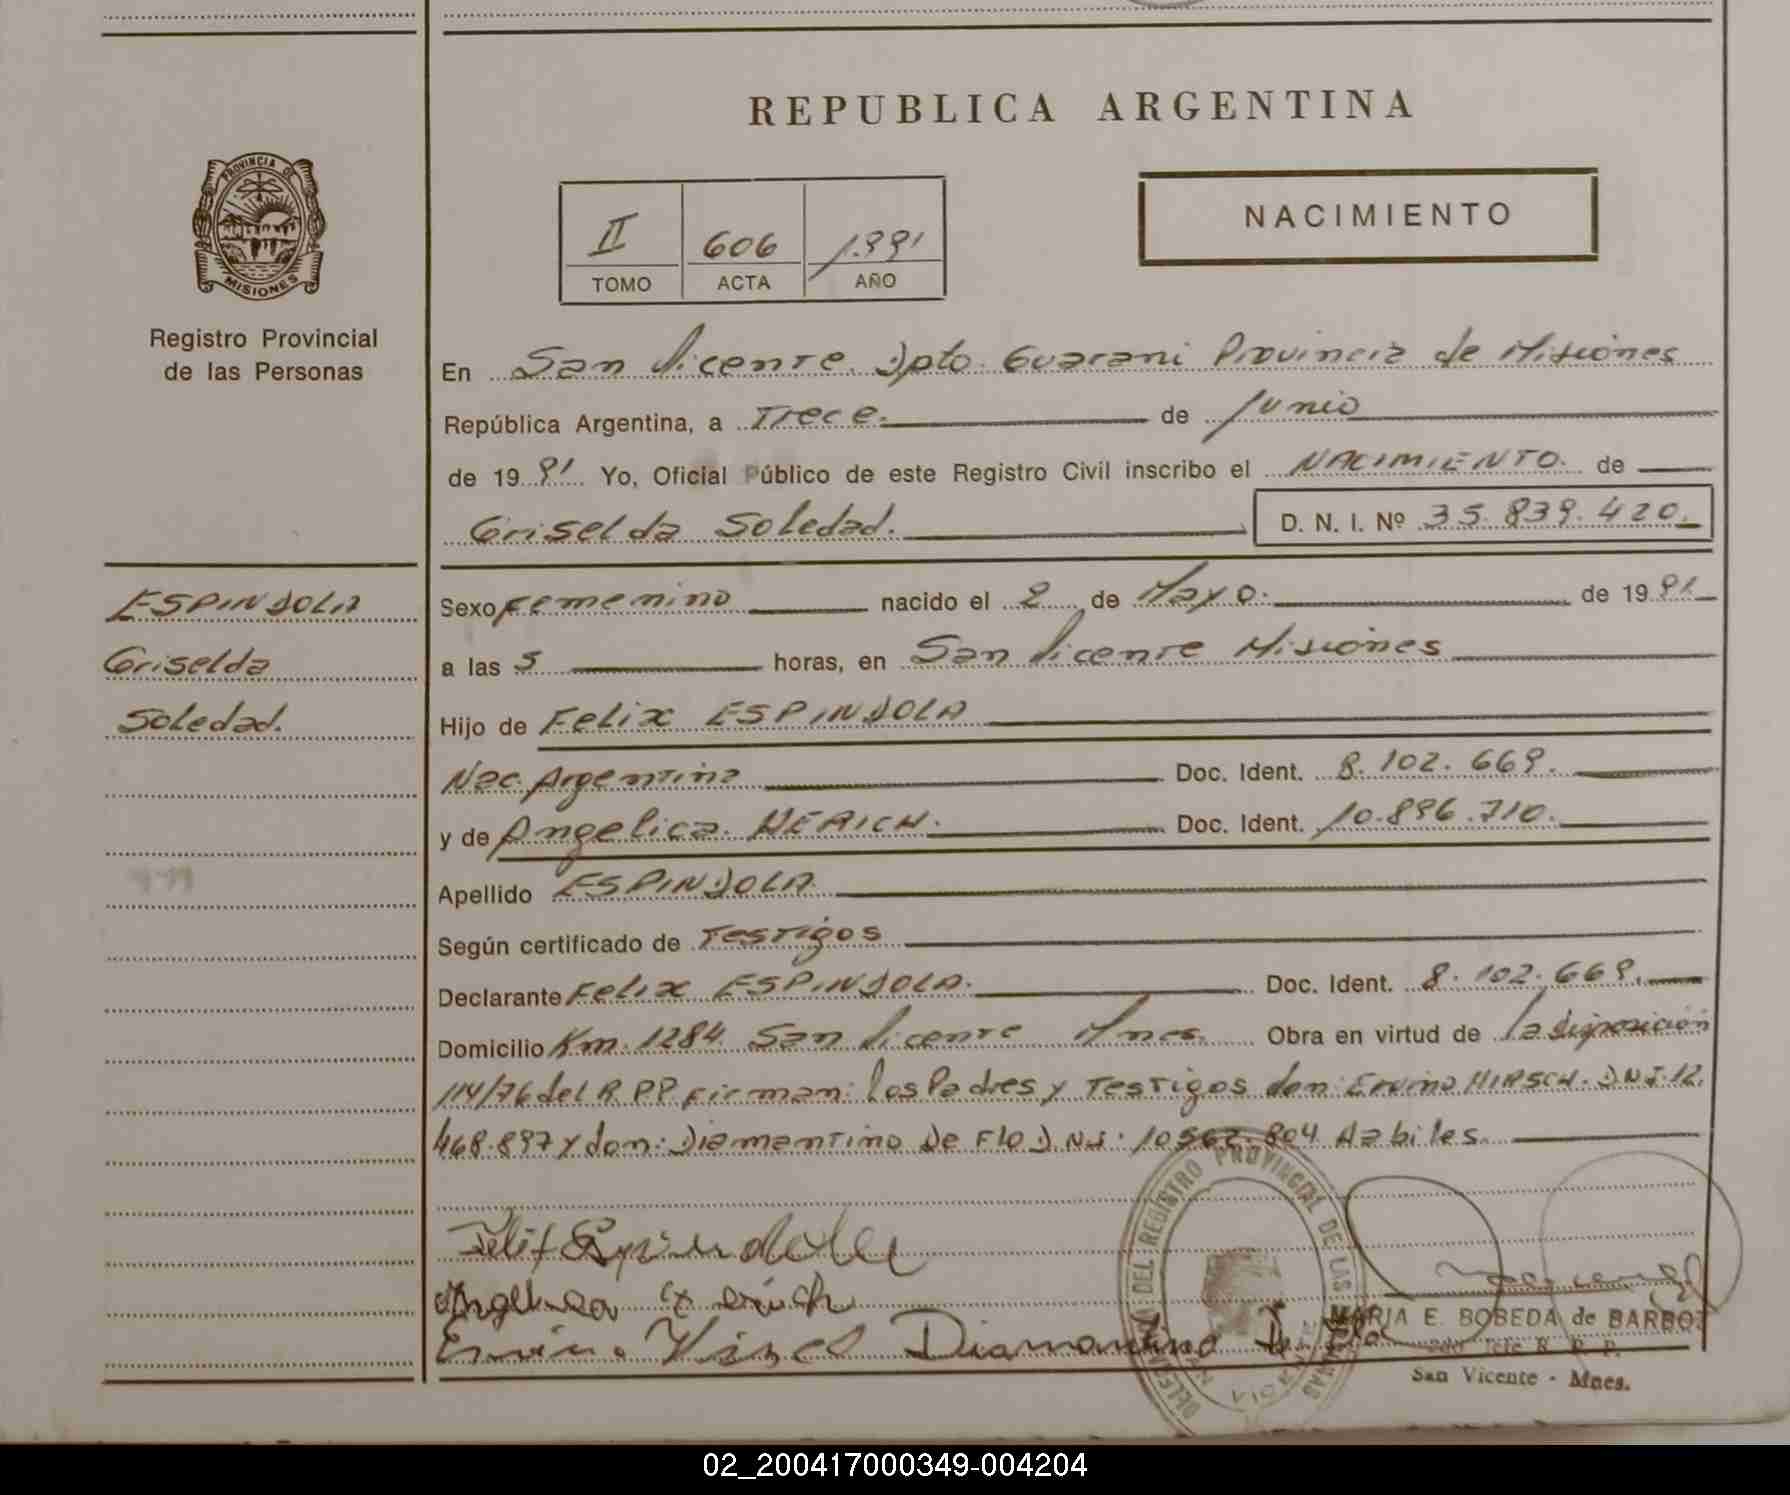 REPUBLICA ARGENTINA
PROVINCIA DE
MISIONES
Registro Provincial
de las Personas
II 606 1.991
TOMO ACTA AÑO
NACIMIENTO
En San Vicente. Dpto. Guarani Provincia de Misiones
República Argentina, a Trece. de junio
de 19 91 Yo, Oficial Público de este Registro Civil inscribo el NACIMIENTO. de
Griselda Soledad. D. N. I. Nº 35.839.420.
ESPINDOLA
Griselda
Soledad.
Sexo Femenino nacido el 2 de Mayo. de 19 91.
a las 5 horas, en San Vicente Misiones
Hijo de Felix ESPINDOLA
Nac. Argentina Doc. Ident. 8.102.669.
y de Angelica Doc. Ident. 10.896.710.
Apellido ESPINDOLA
Según certificado de Testigos
Declarante Felix ESPINDOLA. Doc. Ident. 8.102.669.
Domicilio Km. 1284. San Vicente Mnes. Obra en virtud de la disposición
114/76 del R.PP. firman: los Padres y Testigos don: Ervino HIRSCH. D.N.I. 12.
468.897 y don: Diamantino De Flo D.N.I: 10.562.804 Habiles.
Felix Espindola
Angelica
Diamantino De Flo
DEL REGISTRO PROVINCIAL DE LAS
MARIA E. BOBEDA de BARBOZ
Jefe R. P. P.
San Vicente - Mnes.
02_200417000349-004204